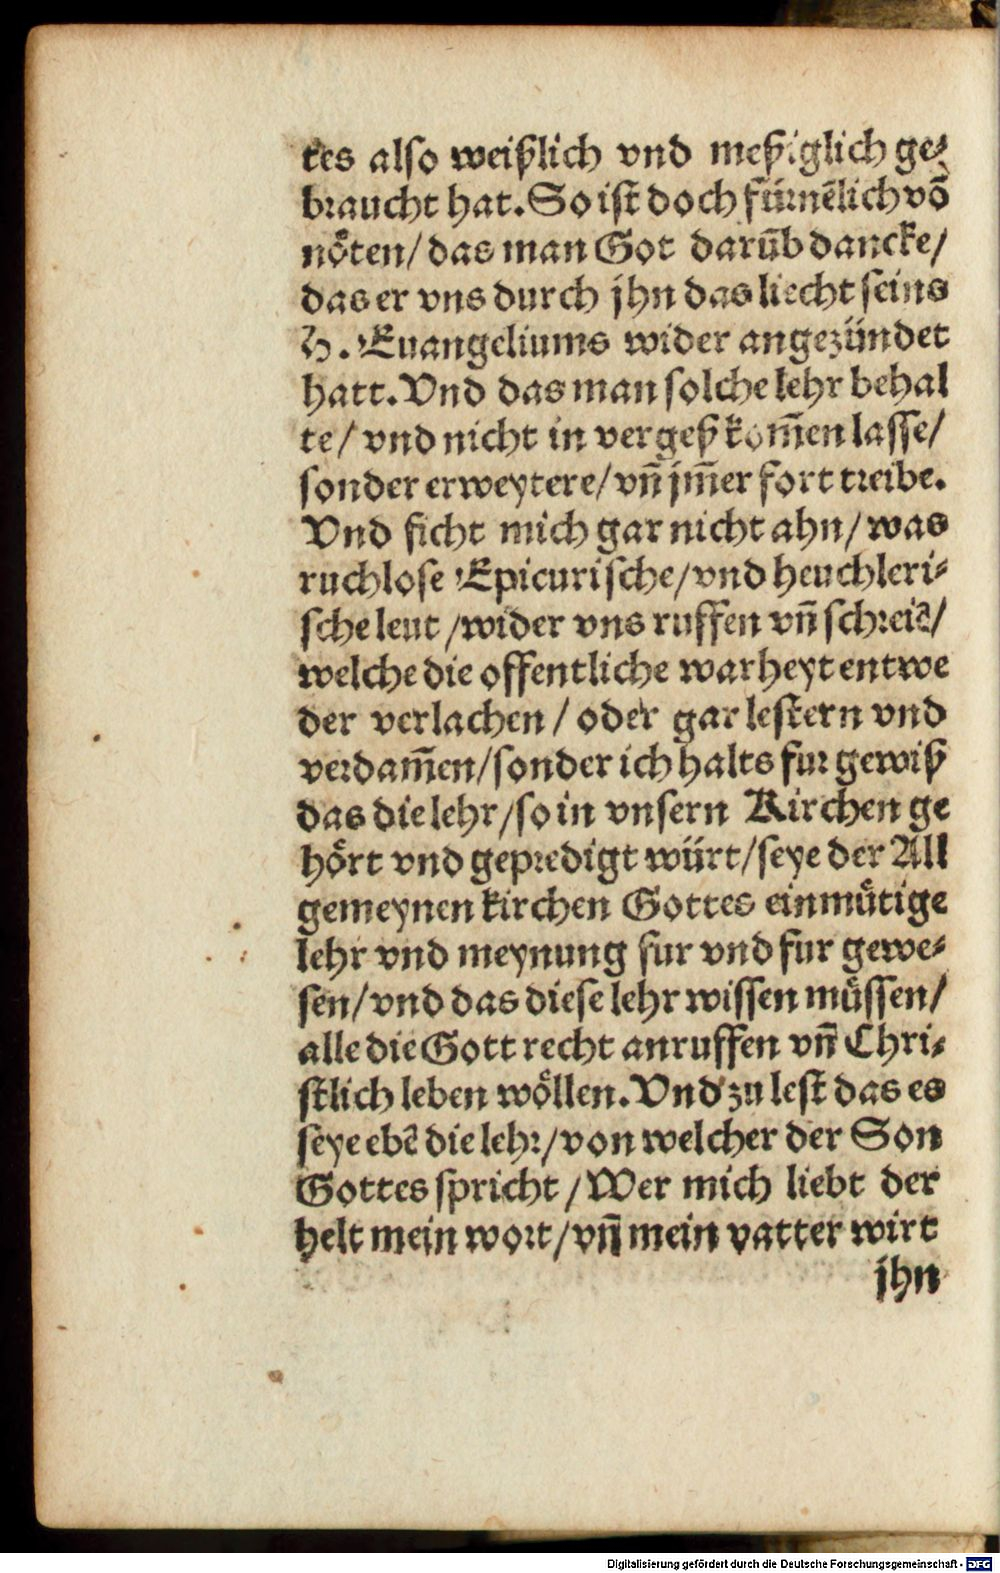 tes also weißlich vnd meßiglich ge⸗
braucht hat. So ist doch fürnēlich vō
nöten/ das man Got darūb dancke/
das er vns durch jhn das liecht seins
H. Euangeliums wider angezündet
hatt. Vnd das man solche lehr behal
te/ vnd nicht in vergeß kom̄en lasse/
sonder erweytere/ vn̄ jm̄er fort treibe.
Vnd ficht mich gar nicht ahn/ was
ruchlose Epicurische/ vnd heuchleri⸗
sche leut /wider vns ruffen vn̄ schreiē/
welche die offentliche warheyt entwe
der verlachen / oder gar lestern vnd
verdam̄en/ sonder ich halts fur gewiß
das die lehr/ so in vnsern Kirchen ge
hört vnd gepredigt würt/ seye der All
gemeynen kirchen Gottes einmütige
lehr vnd meynung fur vnd fur gewe⸗
sen/ vnd das diese lehr wissen müssen/
alle die Gott recht anruffen vn̄ Chri⸗
stlich leben wöllen. Vnd zu lest das es
seye ebē die lehr/ von welcher der Son
Gottes spricht / Wer mich liebt der
helt mein wort/ vn̄ mein vatter wirt
jhn
Digitalisierung gefördert durch die Deutsche Forschungsgemeinschaft - DFG